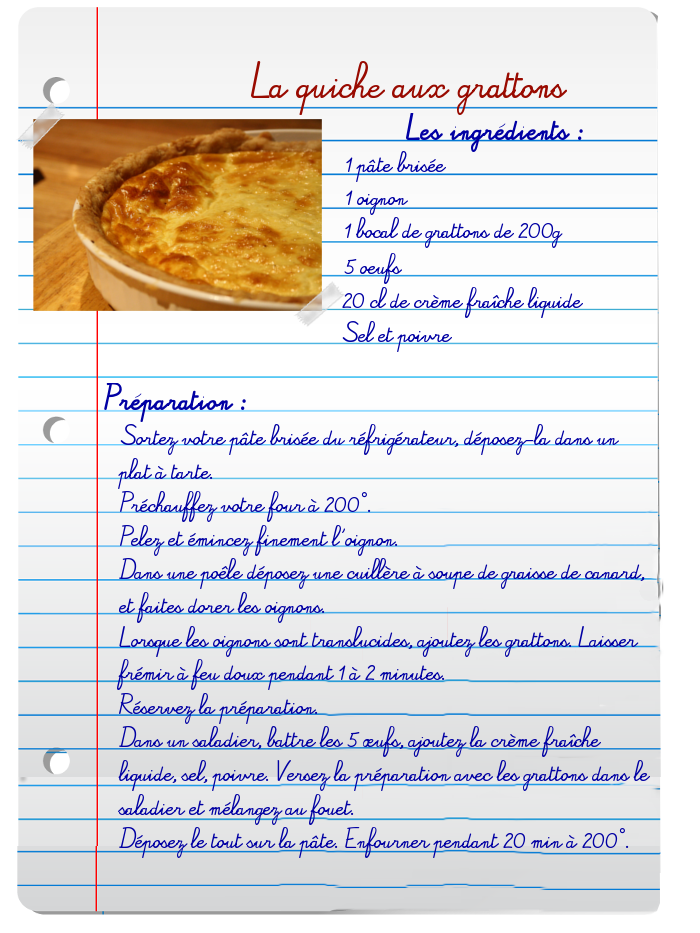 La quiche aux grattons
Les ingrédients :
1 pâte brisée
1 oignon
1 bocal de grattons de 200g
5 oeufs
20 cl de crème fraîche liquide
Sel et poivre
Préparation :
Sortez votre pâte brisée du réfrigérateur, déposez-la dans un
plat à tarte.
Préchauffez votre four à 200°.
Pelez et émincez finement l'oignon.
Dans une poêle déposez une cuillère à soupe de graisse de canard,
et faites dorer les oignons.
Lorsque les oignons sont translucides, ajoutez les grattons. Laisser
frémir à feu doux pendant 1 à 2 minutes.
Réservez la préparation.
Dans un saladier, battre les 5 œufs, ajoutez la crème fraîche
liquide, sel, poivre. Versez la préparation avec les grattons dans le
saladier et mélangez au fouet.
Déposez le tout sur la pâte. Enfourner pendant 20 min à 200°.